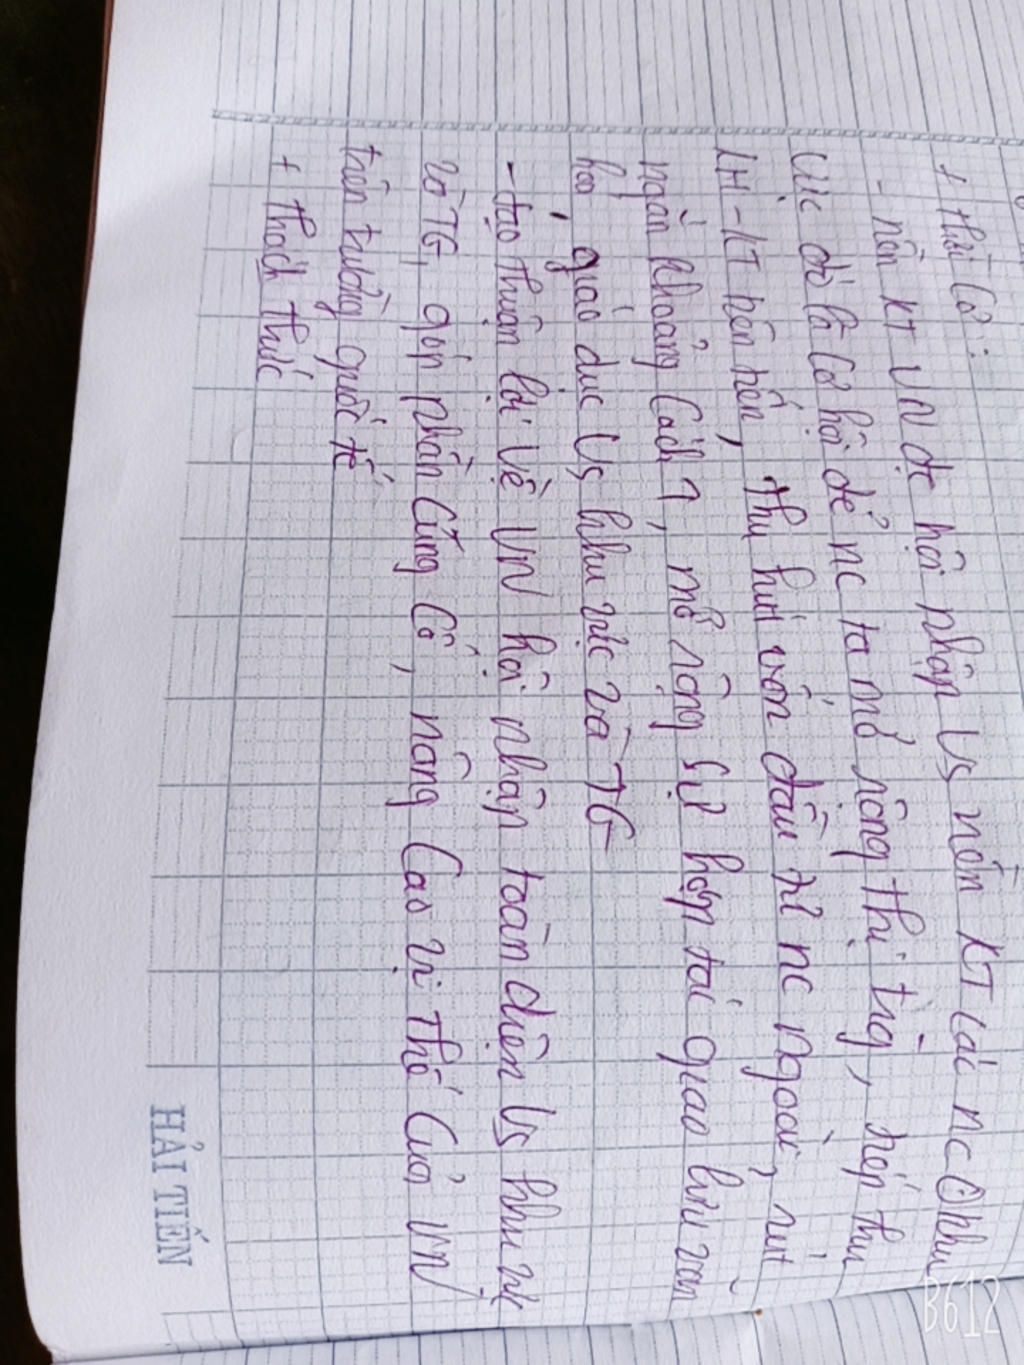 + thời cơ:
- nền KT VN đc hội nhập vs nền KT các nc ở khu
vực đó là cơ hội để nc ta mở rộng thị trg, tiếp thu
KH-KT tiên tiến, thu hút vốn đầu tư nc ngoài, rút
ngắn khoảng cách , mở rộng sự hợp tác giao lưu văn
hoá, giáo dục vs khu vực và TG
- tạo thuận lợi về VN hội nhập toàn diện vs khu vực
và TG, góp phần củng cố, nâng cao vị thế của VN
trên trường quốc tế
+ thách thức
HẢI TIẾN
B612